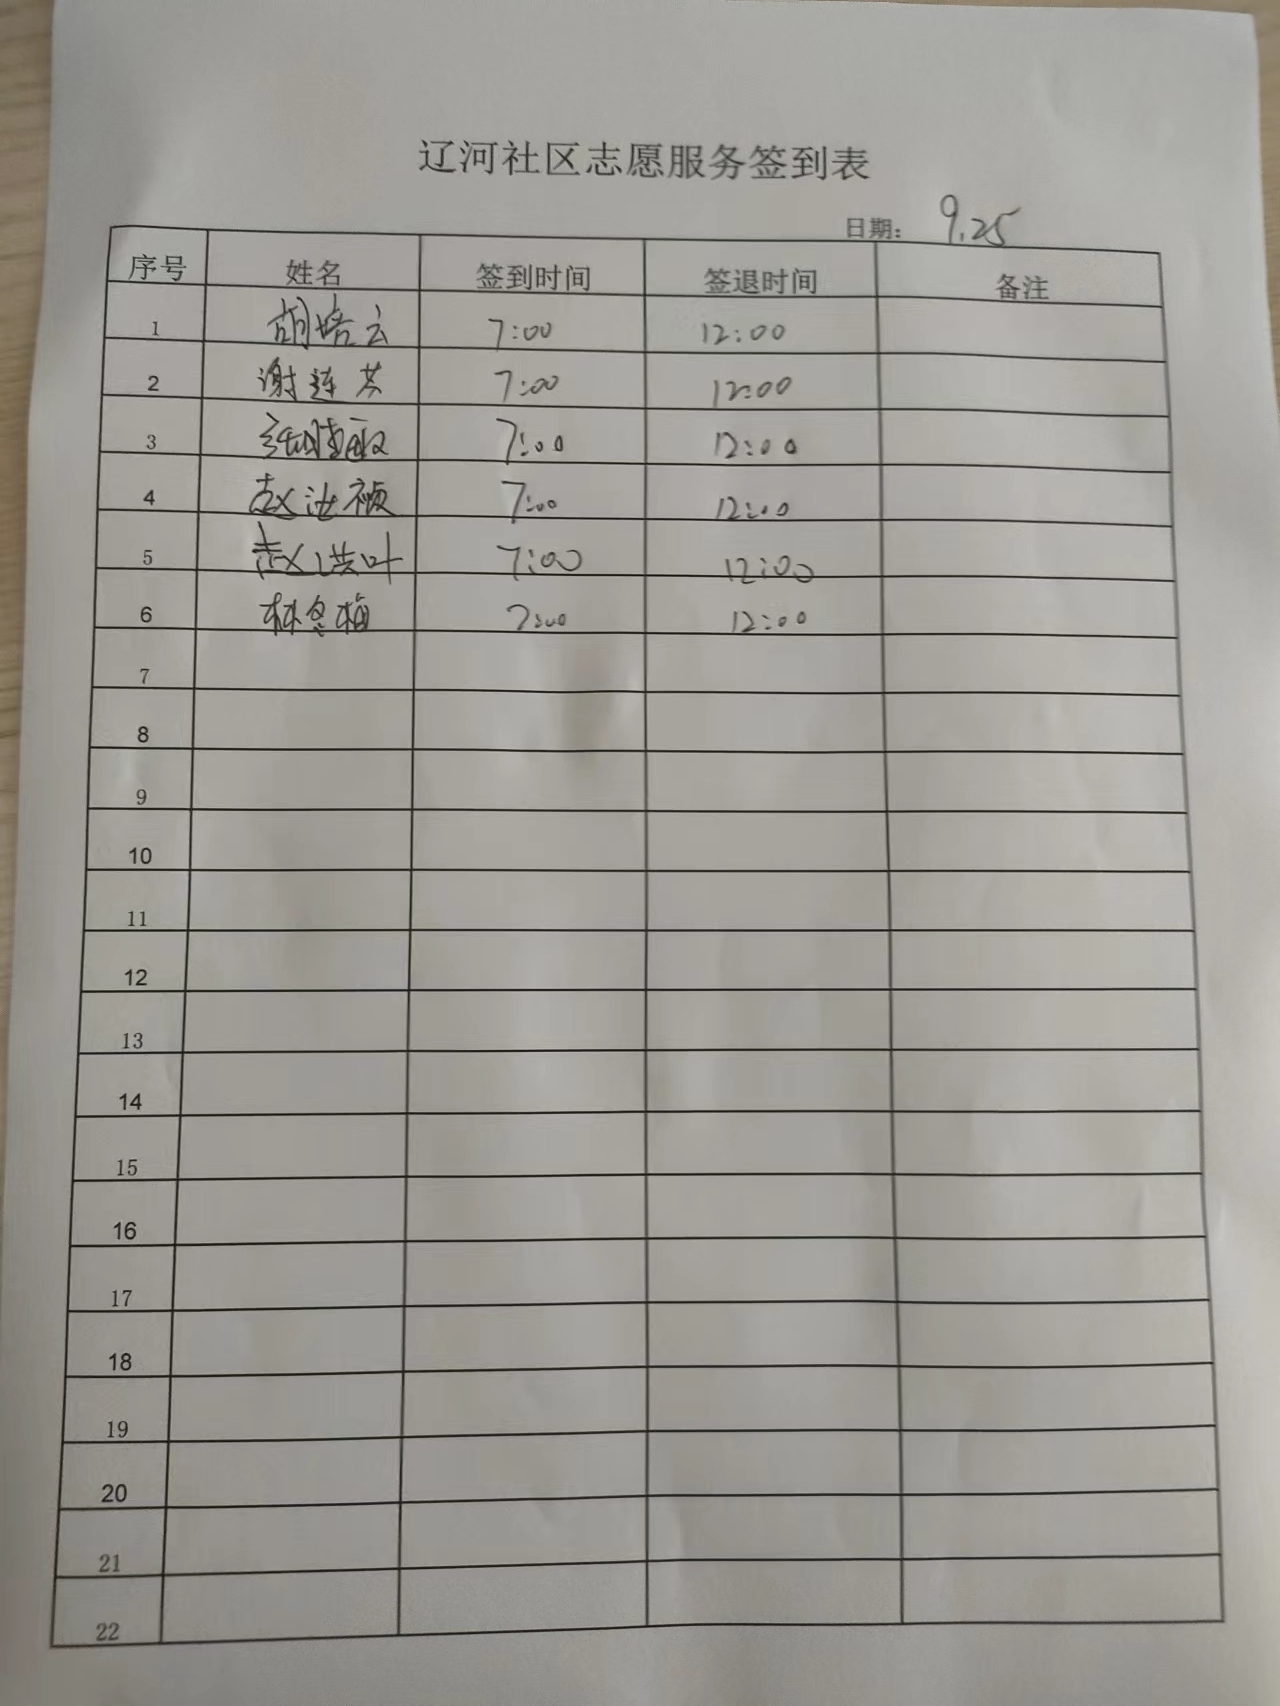 辽河社区志愿服务签到表
日期： 9.25
序号 姓名 签到时间 签退时间 备注
1 胡培云 7:00 12:00
2 谢连芬 7:00 12:00
3 7:00 12:00
4 赵 7:00 12:00
5 赵洪叶 7:00 12:00
6 林冬梅 7:00 12:00
7
8
9
10
11
12
13
14
15
16
17
18
19
20
21
22